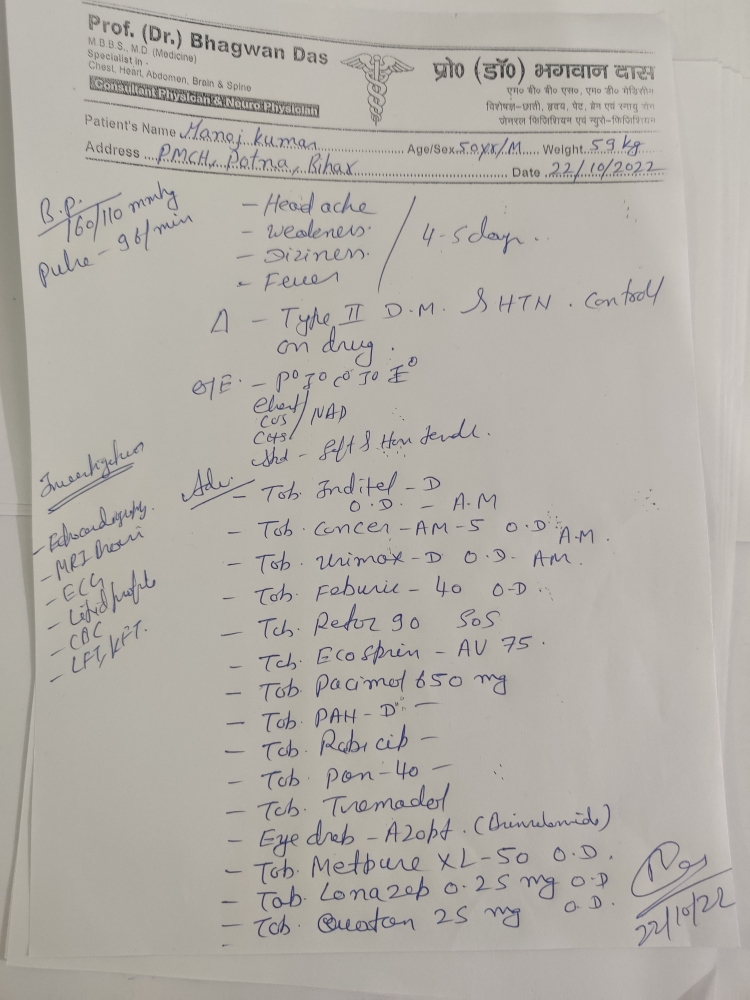 Prof. (Dr.) Bhagwan Das
M.B.B.S., M.D. (Medicine)
Specialist in -
Chest, Heart, Abdomen, Brain & Spine
Consultant Physician & Neuro Physician
प्रो० (डॉ०) भगवान दास
एम० बी० बी० एस०, एम० डी० मेडिसीन
विशेषज्ञ-छाती, हृदय, पेट, ब्रेन एवं स्नायु रोग
जेनरल फिजिशियन एवं न्यूरो-फिजिशियन
Patient's Name Manoj kumar Age/Sex 50yr/M Weight 59 kg
Address PMCH, Patna, Bihar Date 22/10/2022
B.P.
160/110 mmhg
Pulse - 96/min
- Headache
- weakness.
- Diziness.
- Fever
4-5 days..
Δ - Type II D.M. & HTN. Control
on drug.
O/E. - P° J° C° J° E°
Chest
CVS
NAD
Abd - Soft & Non tende.
Investigation
- Echocardiography.
- MRI Brain
- ECG
- Lipid profile
- CBC
- LFT, KFT.
Adv.
- Tab. Inditel - D
O.D. - A.M
- Tab. Concer - AM-5 O.D A.M.
- Tab. Urimax - D O.D. AM.
- Tab. Feburic - 40 O.D.
- Tab. Retoz 90 SOS
- Tab. Ecosprin - AV 75.
- Tab. Pacimol 650 mg
- Tab. PAN - D -
- Tab. Rabicip -
- Tab. Pan-40 -
- Tab. Tramadol
- Eye drob - Azopt. (Brinzolamide)
- Tab. Metpure XL-50 O.D.
- Tab. Lonazep 0.25 mg O.D
- Tab. 25 mg O.D.
Das
22/10/22